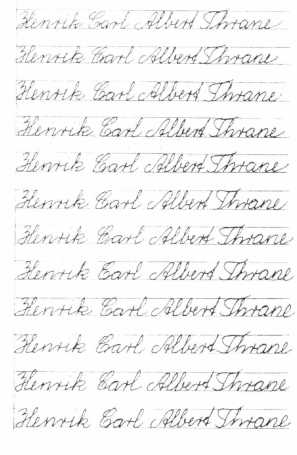 Henrik Carl Albert Thrane
Henrik Carl Albert Thrane
Henrik Carl Albert Thrane
Henrik Carl Albert Thrane
Henrik Carl Albert Thrane
Henrik Carl Albert Thrane
Henrik Carl Albert Thrane
Henrik Carl Albert Thrane
Henrik Carl Albert Thrane
Henrik Carl Albert Thrane
Henrik Carl Albert Thrane
Henrik Carl Albert Thrane